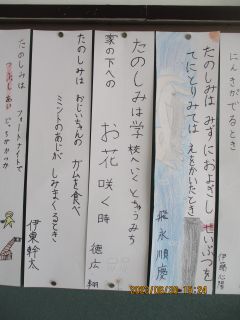 にんきがでるとき
伊藤心陽
たのしみは みずにおよぎし せいぶつを
てにとりみては えをかいたとき
飛永順慶
たのしみは学校へいくとちゅうみち
家の下への
お花 咲く時
徳広 翔
たのしみは おじいちゃんの ガムを食べ
ミントのあじが しみまくるとき
伊東幹太
たのしみは フォートナイトで